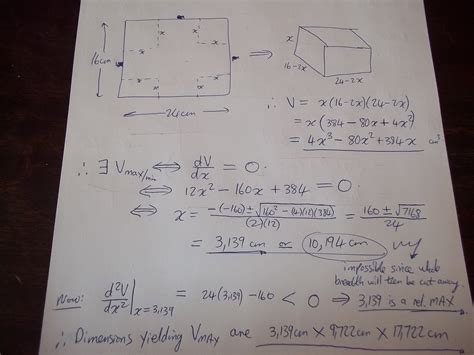 x x
16cm
x x
24cm
⇒
x
16-2x
24-2x
∴ V = x(16-2x)(24-2x)
= x(384-80x+4x²)
= 4x³-80x²+384x cm³
∴ ∃ Vmax/min ⇔ dV/dx = 0
⇔ 12x² - 160x + 384 = 0
⇔ x = (-(-160) ± √(160² - (4)(12)(384)))/((2)(12)) = (160 ± √7168)/24
= 3,139 cm or 10,194 cm
impossible since whole
breadth will then be cut away.
Now: d²V/dx²|x=3,139 = 24(3,139) - 160 < 0 ⇒ 3,139 is a rel. MAX
∴ Dimensions yielding VMAX are 3,139cm × 9,722cm × 17,722cm